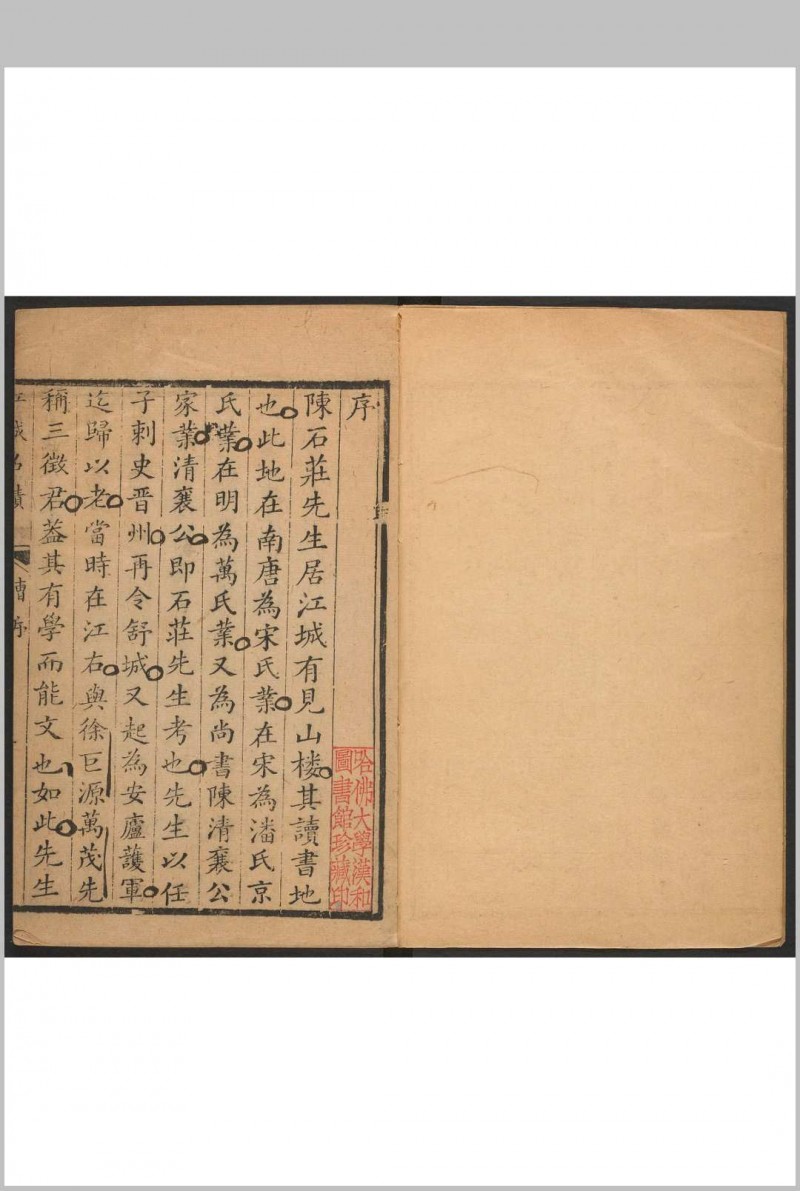 序
陳石莊先生居江城有見山樓其讀書地
也此地在南唐為宋氏業在宋為潘氏京
氏業在明為萬氏業又為尚書陳清襄公
家業清襄公即石莊先生考也先生以任
子刺史晋州再令舒城又起為安廬護軍
迄歸以老當時在江右與徐巨源萬茂先
稱三徵君葢其有學而能文也如此先生
城名蹟
序
哈佛大學漢和
圖書館珍藏印